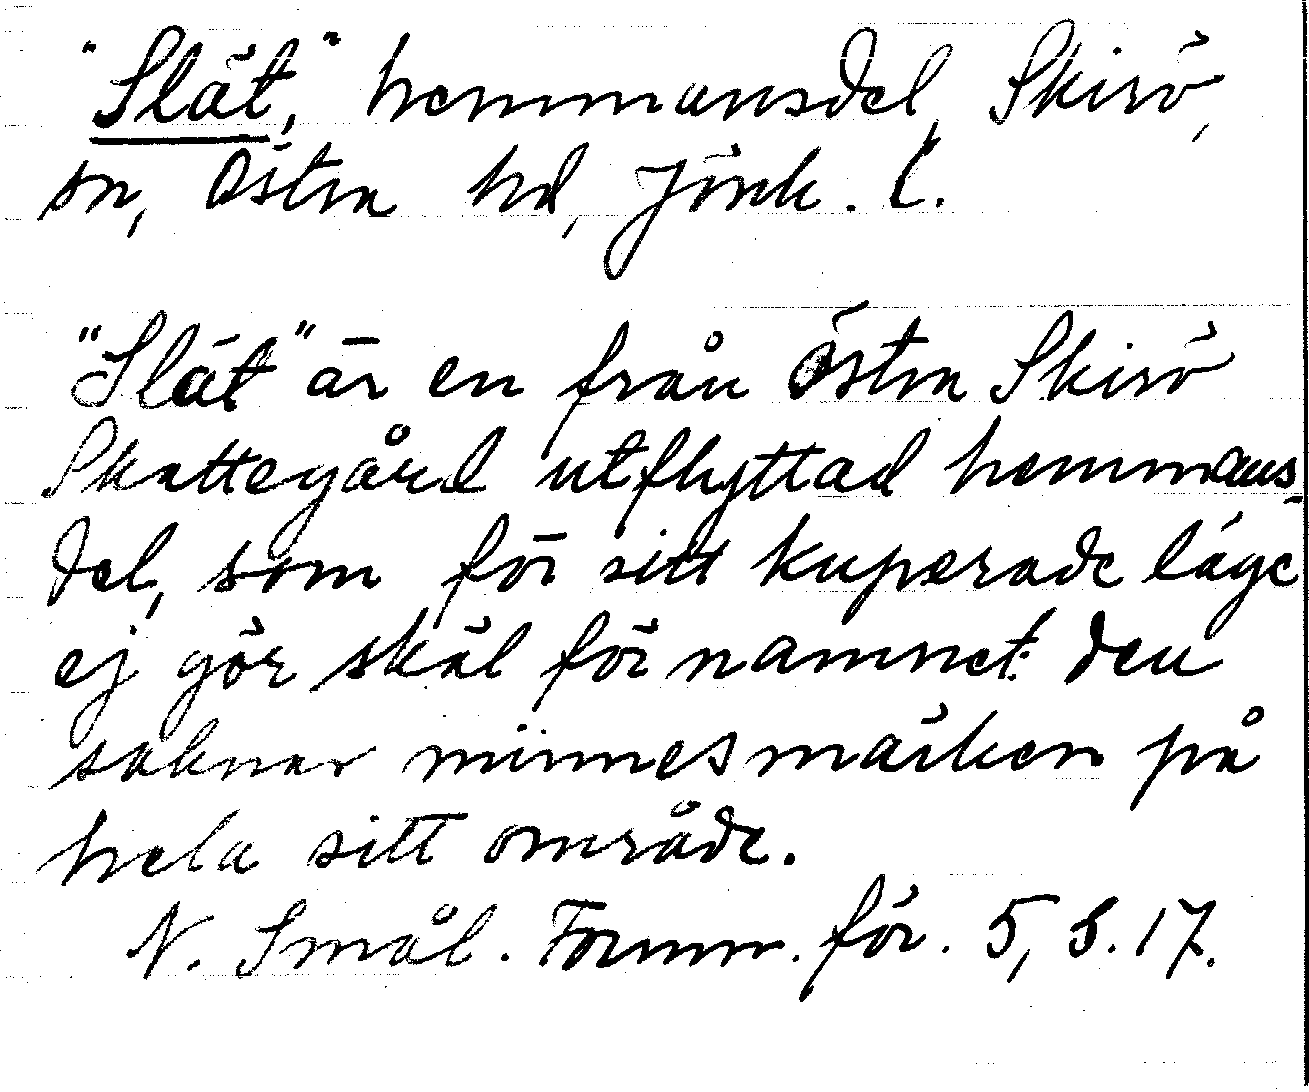 "Slät," hemmansdel, Skirö,
sn, Östra hd, Jönk. l.
"Slät" är en från Östra Skirö
Skattegård utflyttad hemmans-
del, som för sitt kuperade läge
ej gör skäl för namnet: den
saknar minnesmärken på
hela sitt område.
N. Smål. Fornm. för. 5, s. 17.